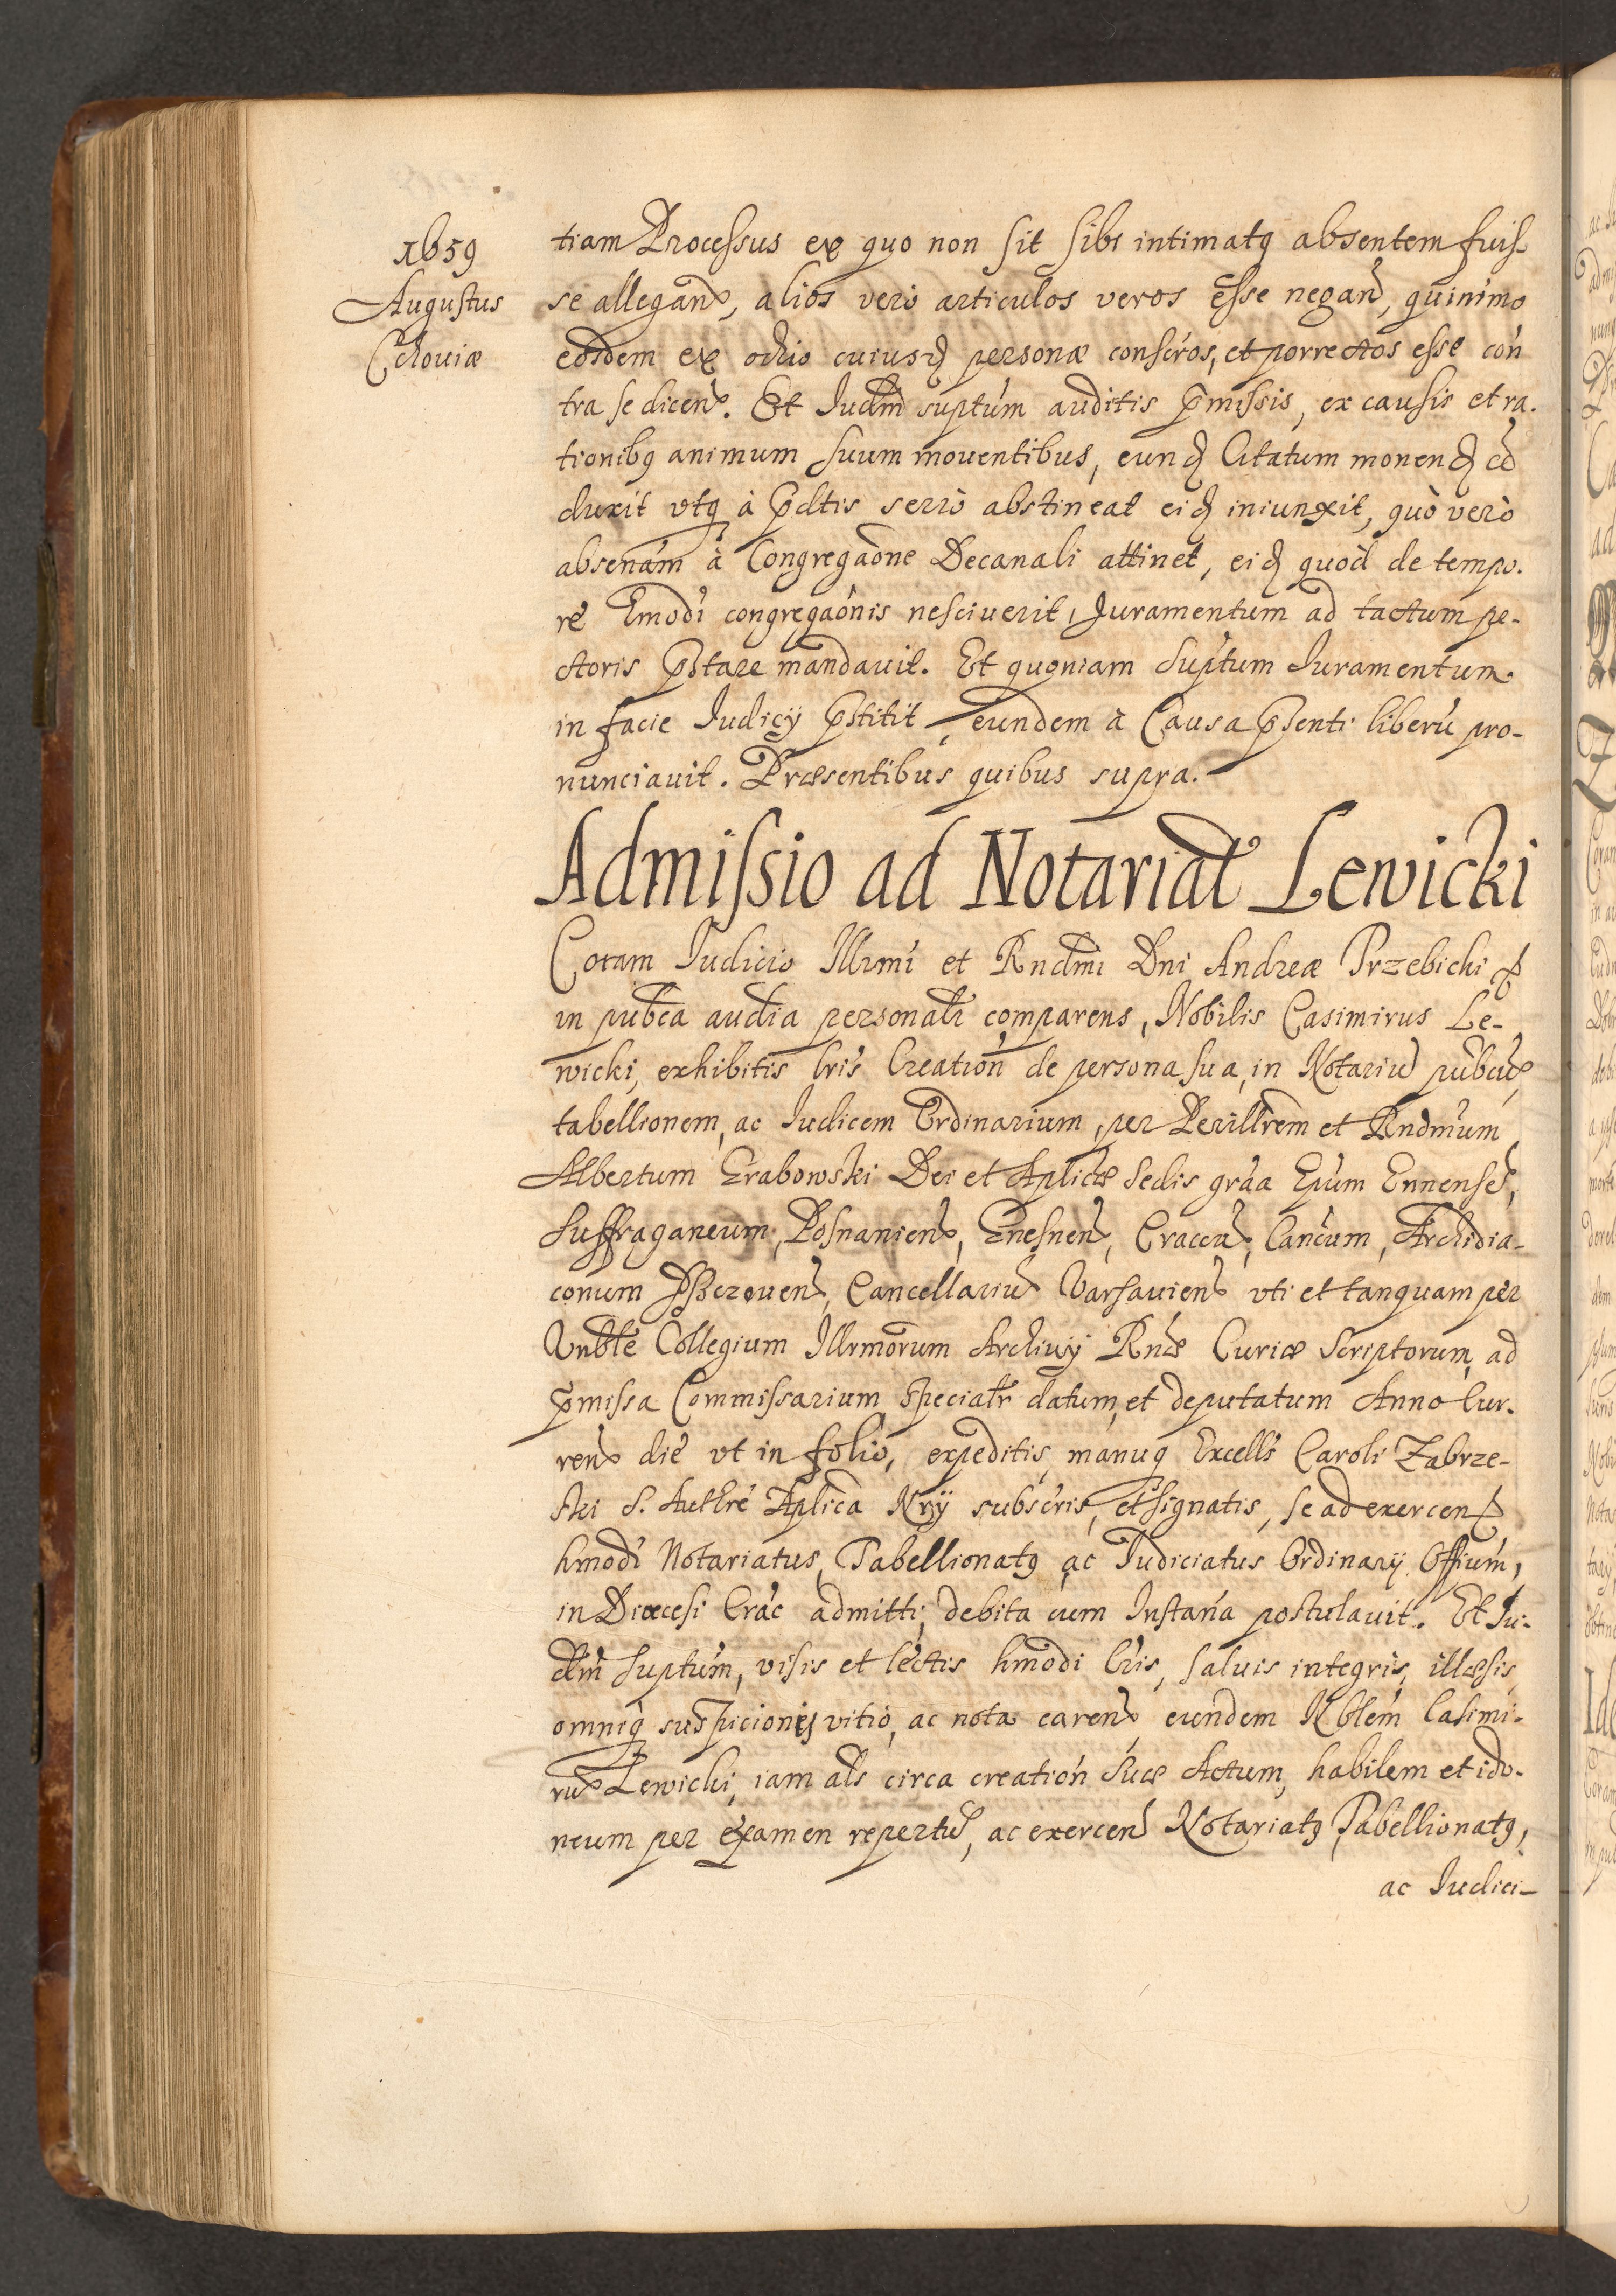 1659
Augustus
Cchoviæ
tiam Processus ex quo non sit sibi intimatq absentem fuis-
se allegan, alios verò articulos veros esse negan, quinimo
eosdem ex odio cuiusd personæ conscros, et porrectos esse cón
tra se dicen. Et Iudm suptúm auditis pmissis, ex causis et ra-
tionibq animum suum moventibus, eund Citatum monend cd
duxit vtq à pdtis seriò abstineat eid iniunxit, quò verò
absenám à Congregaóne Decanali attinet, eid quòd de tempo-
re hmodi congregaónis nesciverit, Juramentum ad tactum pe-
ctoris pstare mandavit. Et quoniam suptum Iuramentum
in facie Iudicij pstitit, eundem à Causa psenti liberũ pro-
nunciavit. Præsentibus quibus supra.
Admissio ad Notariat Lewicki
Coram Iudicio Illrmi et Rndmi Dni Andreæ Trzebicki &
in pubca audia personalr comparens, Nobilis Casimirus Le-
wicki, exhibitis lris Creatión de persona sua, in Notariũ pubcũ
tabellionem, ac Iudicem Ordinarium, per Perillrem et Rndmum
Albertum Grabowski Dei et Aplicæ Sedis gráa Epum Ennensẽ,
Suffraganeum Posnanien, Gnesnen, Craccn, Cancum, Archidia-
conum Pszczoven, Cancellariũ Varsavien vti et tanquam per
Vnble Collegium Illrmorum Archivij Rnæ Curiæ Scriptorum, ad
pmissa Commissarium specialr datum, et deputatum Anno Cur-
ren die vt in folio, expeditis, manuq Excells Caroli Zabrze-
ski S. Authre Aplica Nrij subscris, et signatis, se ad exercend
hmodi Notariatus, Tabellionatq ac Iudiciatus Ordinarij Offium,
in Dioecesi Crac admitti, debita cum Instana postulavit. Et Iu-
dm suptúm, visis et lectis hmodi lris, salvis integris, illæsis
omniq suspicionis vitio, ac nota caren, eundem Nblem Casimi-
rũ Lewicki, iam als circa creatión suæ Actum, habilem et ido-
neum per examen repertũ, ac exercen Notariatq Tabellionatq,
ac Iudici-